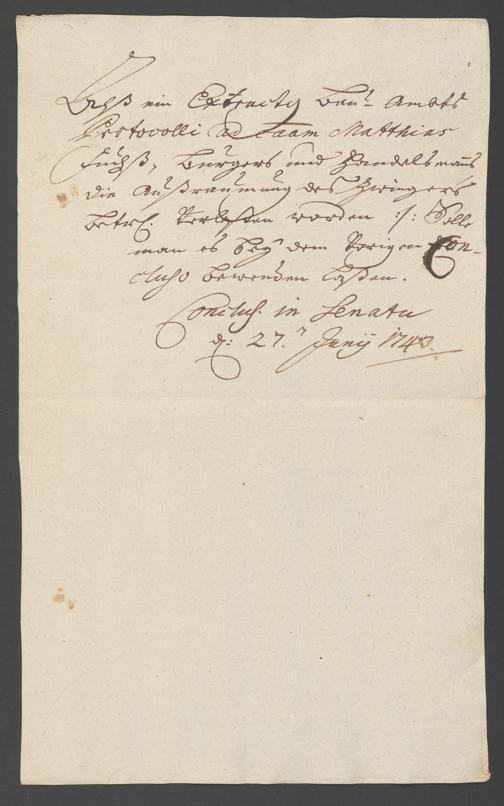 Als ein Extractus Bau- Ambts
Protocolli ad Caam Matthias
Fuchß, Burgers und Handelsmanns
die Außraumung des Zwingers
betrf. Verlesen worden :/: Solle
man es bey dem Vorigen Con-
cluso bewenden lassen.
Conclus. in Senatu
d: 27. Junij 1743.